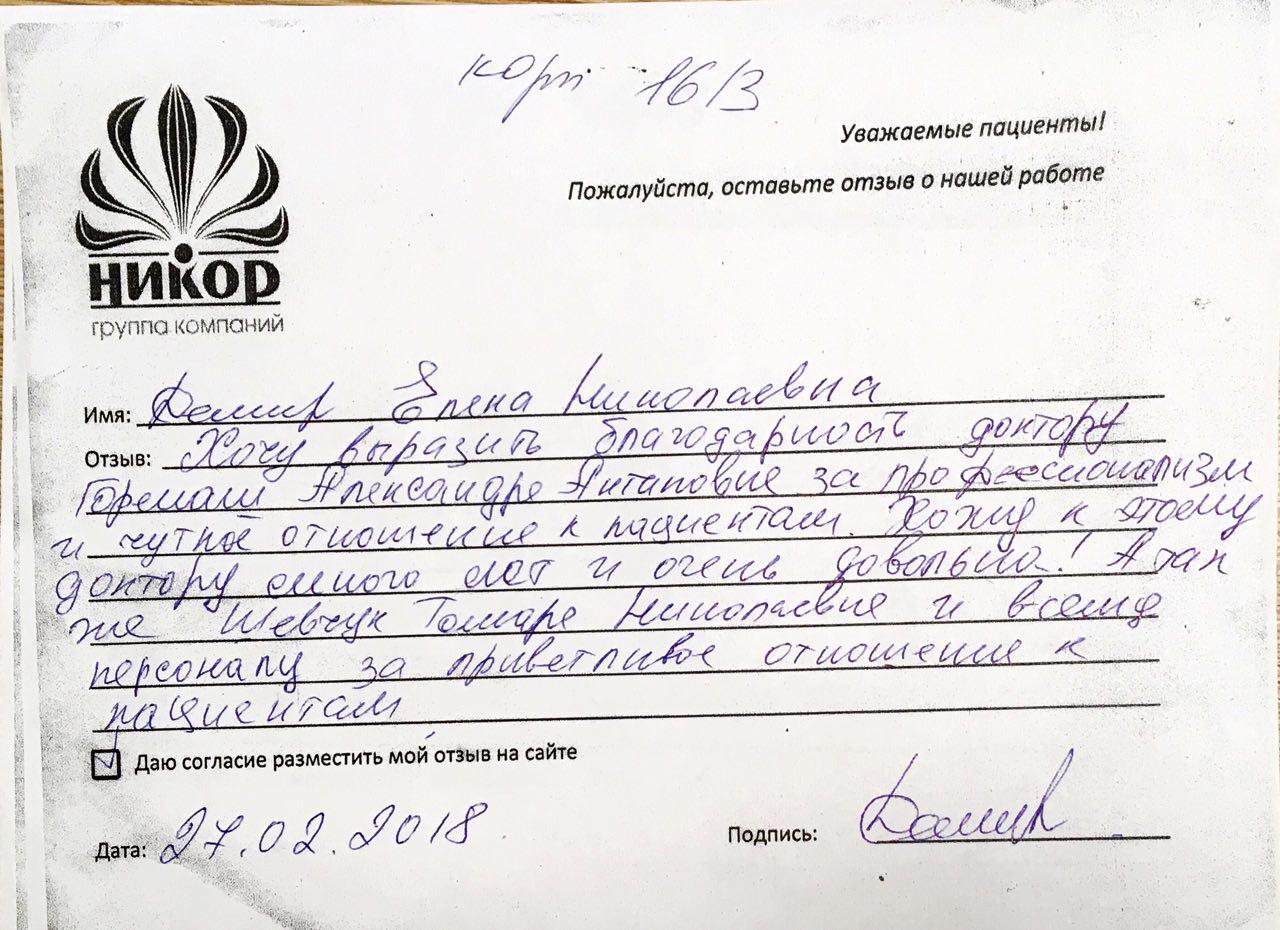 корп 16/3
Уважаемые пациенты!
Пожалуйста, оставьте отзыв о нашей работе
НИКОР
группа компаний
Имя: Елена Николаевна
Отзыв: Хочу выразить благодарность доктору
Александре Антаповне за профессионализм
и чуткое отношение к пациентам. Хожу к этому
доктору много лет и очень довольна! А так
же Шевчук Тамаре Николаевне и всему
персоналу за приветливое отношение к
пациентам
Даю согласие разместить мой отзыв на сайте
Дата: 27.02.2018
Подпись: